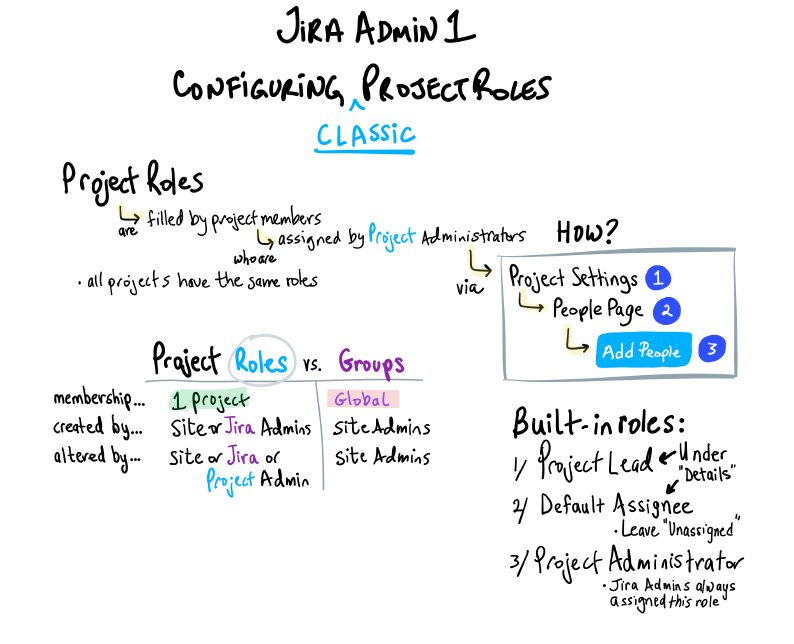 JIRA ADMIN 1
CONFIGURING PROJECT ROLES
CLASSIC
Project Roles
are filled by project members
who are assigned by Project Administrators
• all projects have the same roles
via
How?
Project Settings 1
People Page 2
Add People 3
Project Roles vs. Groups
membership... 1 project Global
created by... Site or Jira Admins Site Admins
altered by... Site or Jira or Site Admins
Project Admin
Built-in roles:
1/ Project Lead Under
"Details"
2/ Default Assignee
• Leave "Unassigned"
3/ Project Administrator
• Jira Admins always
assigned this role